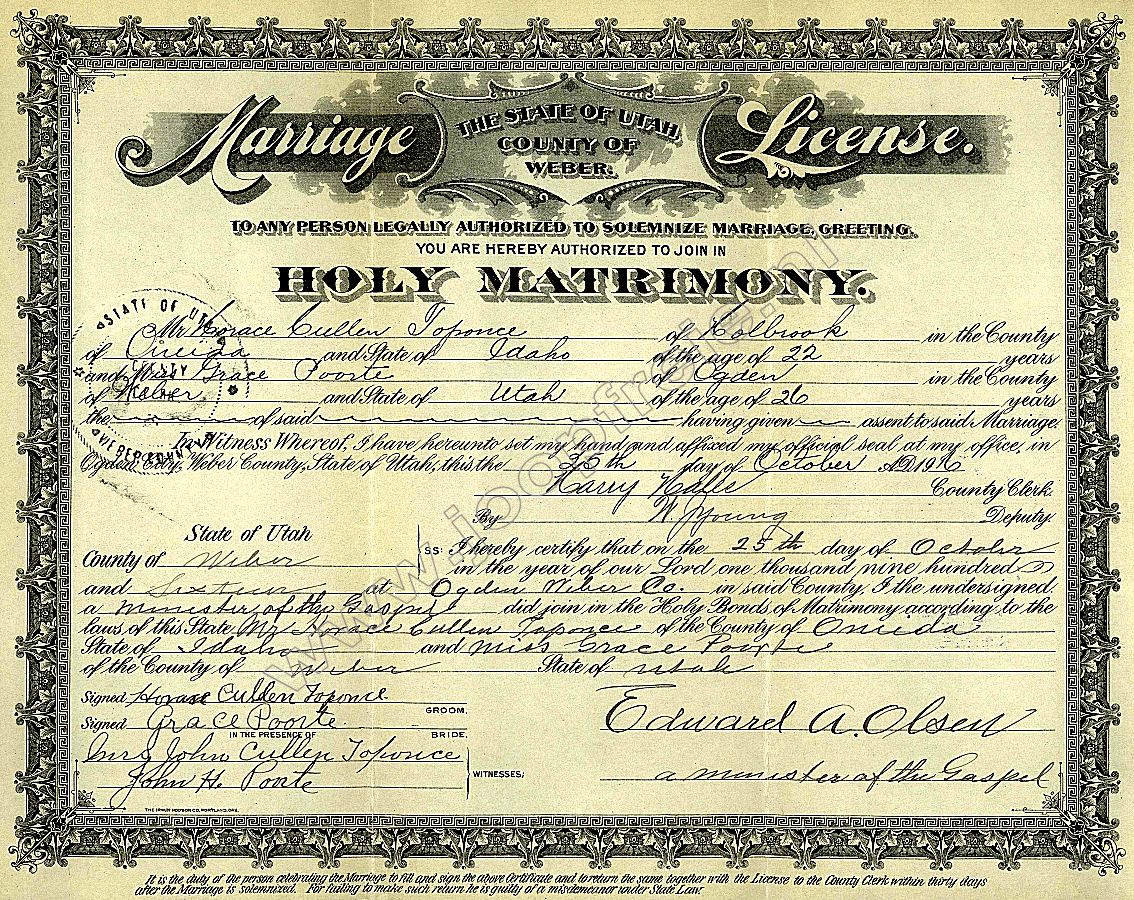 Marriage License.
THE STATE OF UTAH,
COUNTY OF
WEBER.
TO ANY PERSON LEGALLY AUTHORIZED TO SOLEMNIZE MARRIAGE, GREETING,
YOU ARE HEREBY AUTHORIZED TO JOIN IN
HOLY MATRIMONY.
STATE OF UTAH
COUNTY
WEBER COUNTY
Mr. Horace Cullen Toponce of Holbrook in the County
of Oneida and State of Idaho of the age of 22 years
and Miss Grace Poorte of Ogden in the County
of Weber and State of Utah of the age of 26 years
the of said having given assent to said Marriage.
In Witness Whereof, I have hereunto set my hand and affixed my official seal at my office, in
Ogden City, Weber County, State of Utah, this the 25th day of October A.D. 1916
Harry County Clerk.
By W Young Deputy.
State of Utah
County of Weber
SS: I hereby certify that on the 25th day of October
in the year of our Lord, one thousand nine hundred
and Sixteen at Ogden Weber Co. in said County, I the undersigned
a minister of the Gospel did join in the Holy Bonds of Matrimony according to the
laws of this State Mr Horace Cullen Toponce of the County of Oneida
State of Idaho and Miss Grace Poorte
of the County of Weber State of Utah
Signed Horace Cullen Toponce
GROOM.
Signed Grace Poorte.
BRIDE.
IN THE PRESENCE OF
Mrs John Cullen Toponce
John H. Poorte
WITNESSES;
Edward A. Olsen
a minister of the Gospel
THE IRWIN HODSON CO. PORTLAND, ORE.
It is the duty of the person celebrating the Marriage to fill and sign the above Certificate and to return the same together with the License to the County Clerk within thirty days
after the Marriage is solemnized. For failing to make such return he is guilty of a misdemeanor under State Law.